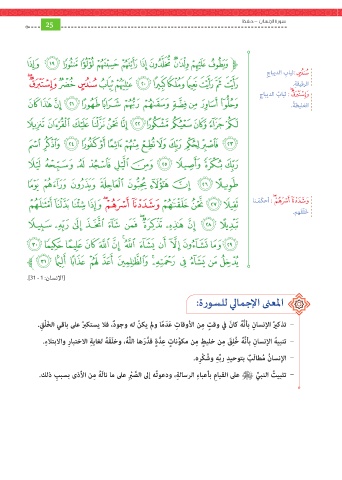 سورة الإنسان - حفظ
25
﴿ وَيَطُوفُ عَلَيْهِمْ وِلْدَٰنٌ مُّخَلَّدُونَ إِذَا رَأَيْتَهُمْ حَسِبْتَهُمْ لُؤْلُؤًا مَّنثُورًا ١٩ وَإِذَا
رَأَيْتَ ثَمَّ رَأَيْتَ نَعِيمًا وَمُلْكًا كَبِيرًا ٢٠ عَٰلِيَهُمْ ثِيَابُ سُندُسٍ خُضْرٌ وَإِسْتَبْرَقٌ
وَحُلُّوٓا۟ أَسَاوِرَ مِن فِضَّةٍ وَسَقَىٰهُمْ رَبُّهُمْ شَرَابًا طَهُورًا ٢١ إِنَّ هَٰذَا كَانَ
لَكُمْ جَزَآءً وَكَانَ سَعْيُكُم مَّشْكُورًا ٢٢ إِنَّا نَحْنُ نَزَّلْنَا عَلَيْكَ ٱلْقُرْءَانَ تَنزِيلًا
٢٣ فَٱصْبِرْ لِحُكْمِ رَبِّكَ وَلَا تُطِعْ مِنْهُمْ ءَاثِمًا أَوْ كَفُورًا ٢٤ وَٱذْكُرِ ٱسْمَ
رَبِّكَ بُكْرَةً وَأَصِيلًا ٢٥ وَمِنَ ٱلَّيْلِ فَٱسْجُدْ لَهُۥ وَسَبِّحْهُ لَيْلًا
طَوِيلًا ٢٦ إِنَّ هَٰٓؤُلَآءِ يُحِبُّونَ ٱلْعَاجِلَةَ وَيَذَرُونَ وَرَآءَهُمْ يَوْمًا
ثَقِيلًا ٢٧ نَّحْنُ خَلَقْنَٰهُمْ وَشَدَدْنَآ أَسْرَهُمْ وَإِذَا شِئْنَا بَدَّلْنَآ أَمْثَٰلَهُمْ
تَبْدِيلًا ٢٨ إِنَّ هَٰذِهِۦ تَذْكِرَةٌ فَمَن شَآءَ ٱتَّخَذَ إِلَىٰ رَبِّهِۦ سَبِيلًا
٢٩ وَمَا تَشَآءُونَ إِلَّآ أَن يَشَآءَ ٱللَّهُ إِنَّ ٱللَّهَ كَانَ عَلِيمًا حَكِيمًا ٣٠
يُدْخِلُ مَن يَشَآءُ فِى رَحْمَتِهِۦ وَٱلظَّٰلِمِينَ أَعَدَّ لَهُمْ عَذَابًا أَلِيمًا ٣١ ﴾
[الإنسان: ١ - 31].
سُندُسٍ: ثياب الديباج
الرقيقة.
وَإِسْتَبْرَقٌ: ثياب الديباج
الغليظة.
وَشَدَدْنَآ أَسْرَهُمْ: أحكمنا
خلقهم.
المعنى الإجمالي للسورة:
– تذكيرُ الإنسانِ بأنَّهُ كانَ في وقتٍ مِن الأوقاتِ عَدَمًا ولمْ يكنْ له وجودٌ، فلا يستكبرُ على باقي الخَلْقِ.
– تنبيهُ الإنسانِ بأنَّهُ خُلِقَ مِن خليطٍ مِن مكوِّناتٍ عِدَّةٍ قدَّرَها اللَّهُ، وخَلَقَهُ لغايةِ الاختبارِ والابتلاءِ.
– الإنسانُ مُطالَبٌ بتوحيدِ ربِّهِ وشُكْرِهِ.
– تثبيتُ النبيِّ ﷺ على القيامِ بأعباءِ الرسالةِ، ودعوتُهُ إلى الصَّبْرِ على ما نالَهُ مِن الأذَى بسببِ ذلك.